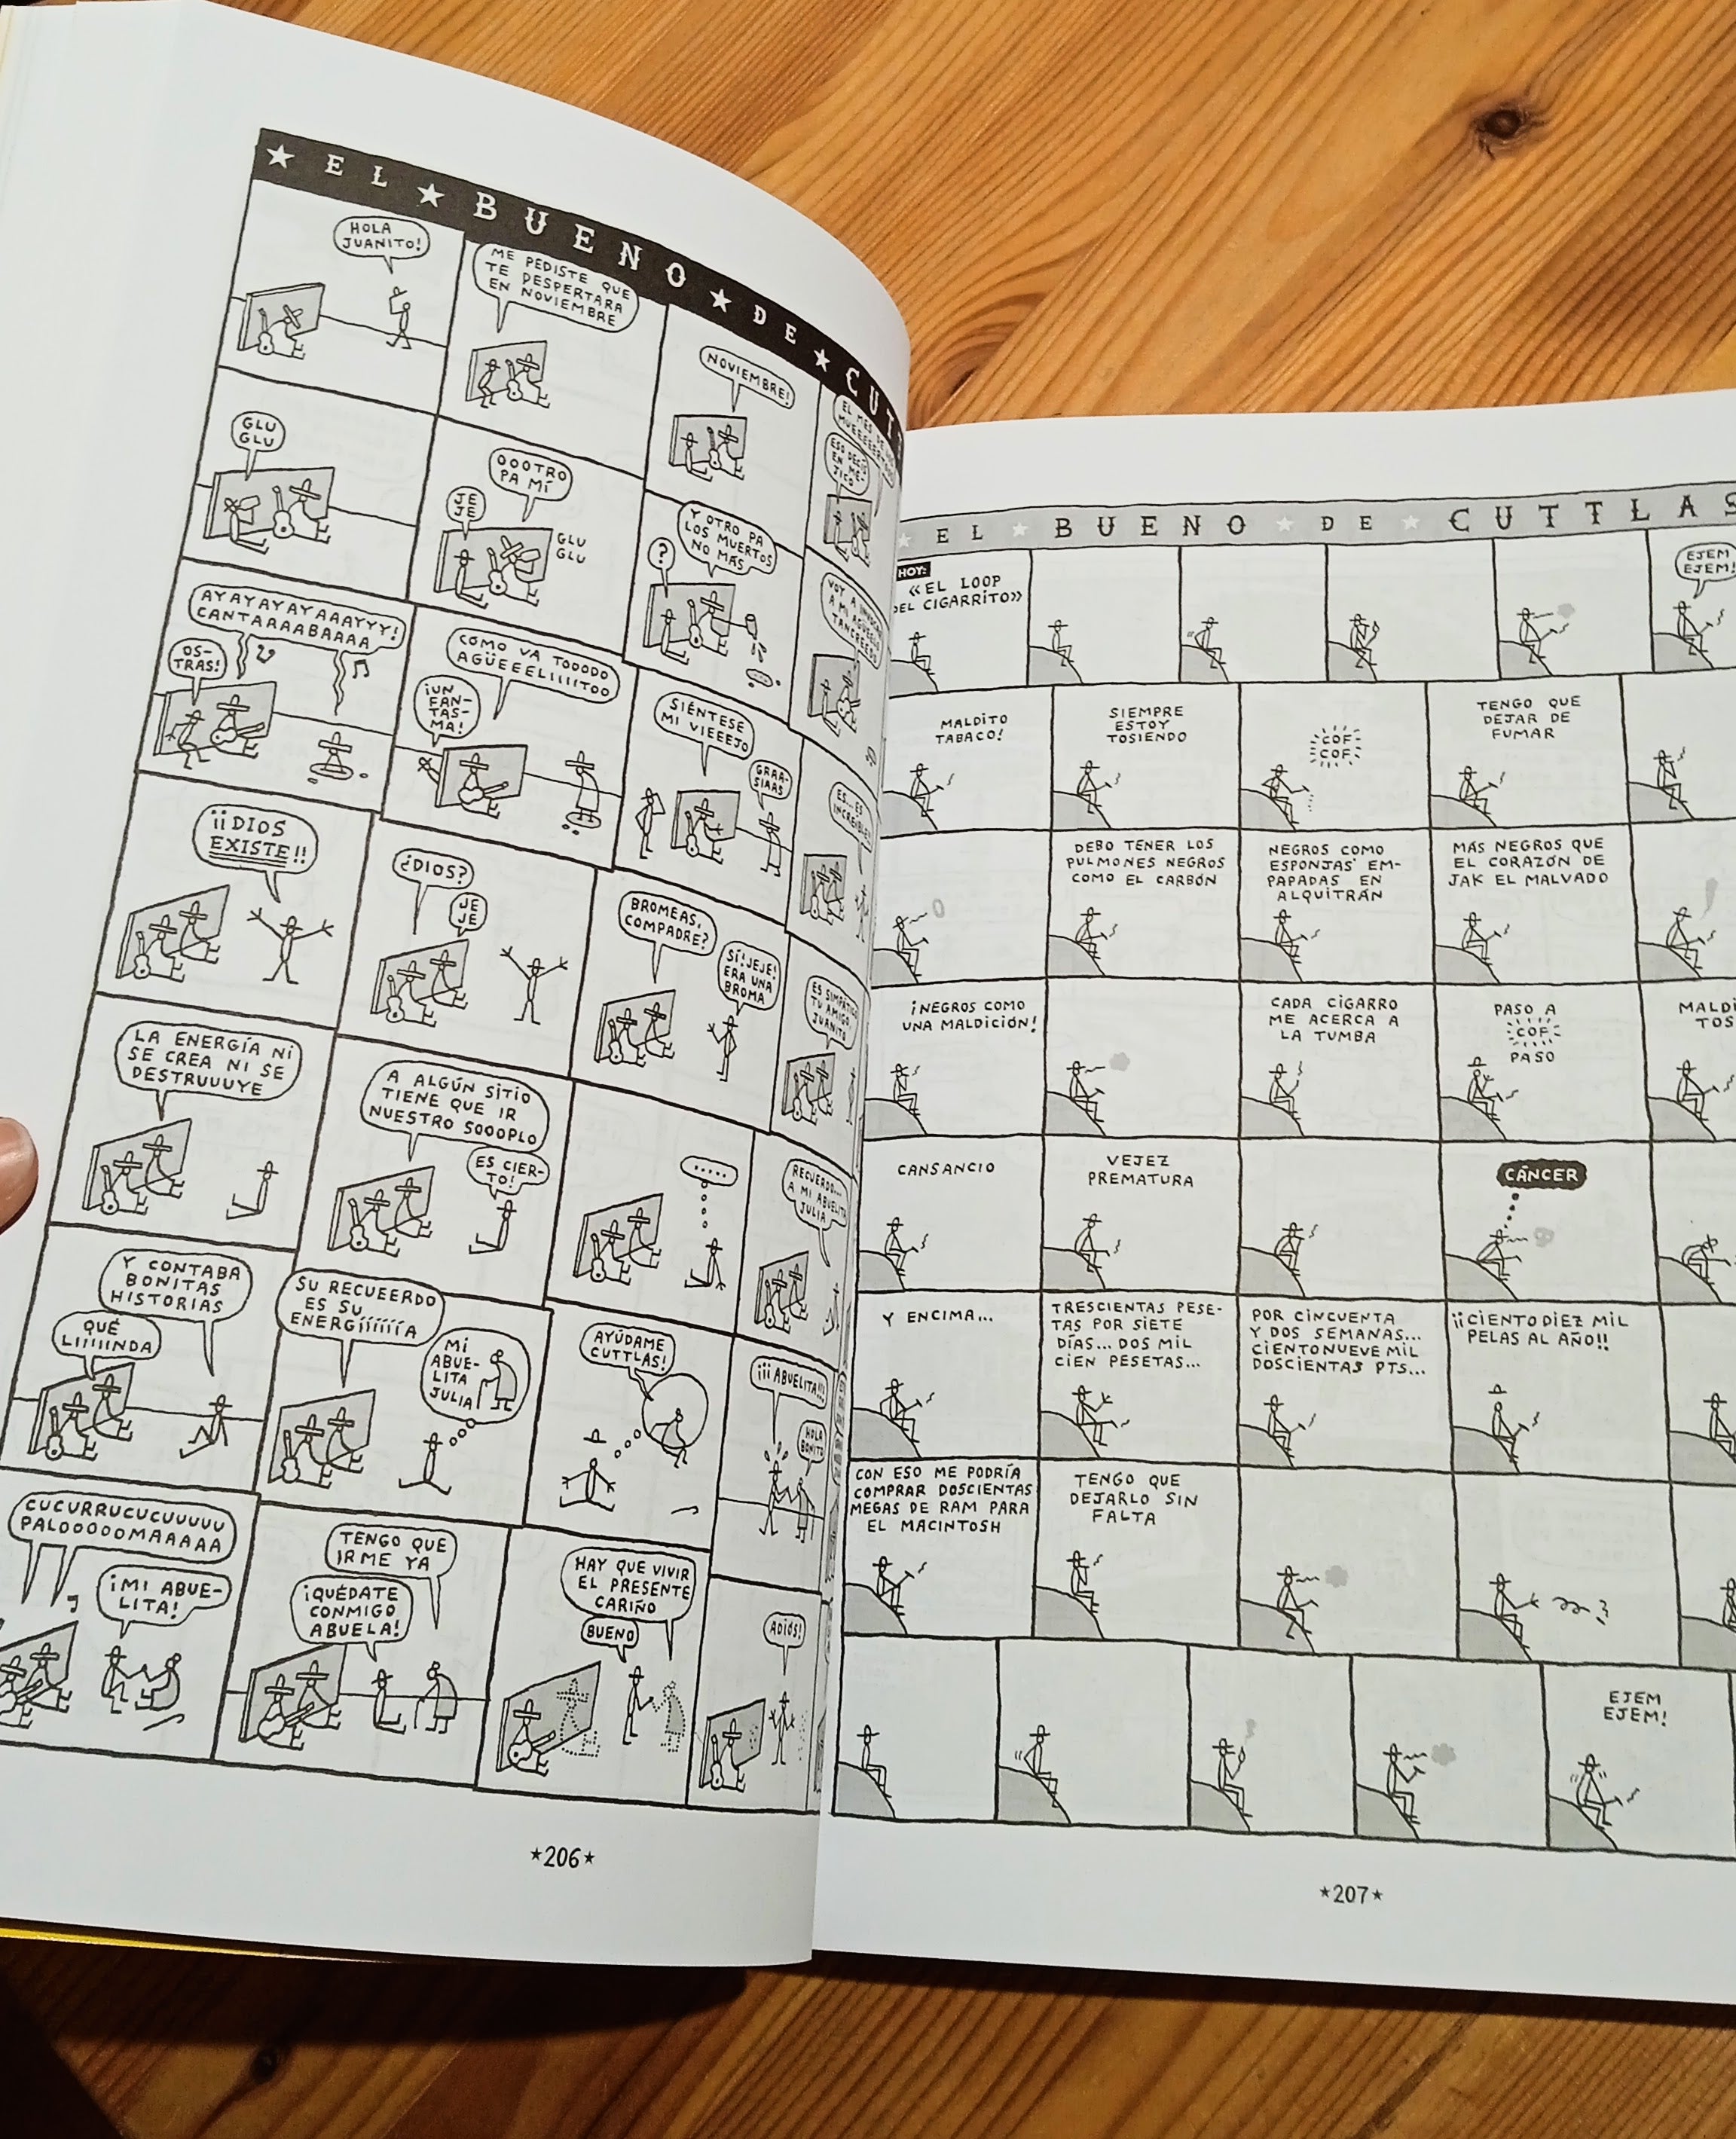 ★ EL ★ BUENO ★ DE ★ CUT
HOLA
JUANITO!
ME PEDISTE QUE
TE DESPERTARA
EN NOVIEMBRE
NOVIEMBRE!
EL MES DE
ESO DECÍS
EN MÉ-
JICO
GLU
GLU
OOOTRO
PA MÍ
JE
JE
GLU
GLU
Y OTRO PA
LOS MUERTOS
NO MÁS
?
VOY A
A MI AGÜELO
AYAYAYAYAAAYYY!
CANTARAABAAAA
OS-
TRAS!
CÓMO VA TOODDO
AGÜEEELIIIITOO
¡UN
FAN-
TAS-
MA!
SIÉNTESE
MI VIEEEJO
GRAA-
SIAAS
ES... ES
INCREÍBLE!
¡¡DIOS
EXISTE!!
¿DIOS?
JE
JE
BROMEAS,
COMPADRE?
SÍ! JEJE!
ERA UNA
BROMA
ES SIMPÁTICO
TU AMIGO,
JUANITO
LA ENERGÍA NI
SE CREA NI SE
DESTRUUUYE
A ALGÚN SITIO
TIENE QUE IR
NUESTRO SOOOPLO
ES CIER-
TO!
.....
RECUERDO...
A MI ABUELITA
JULIA
Y CONTABA
BONITAS
HISTORIAS
QUÉ
LIIIINDA
SU RECUEERDO
ES SU
ENERGÍÍÍÍÍÍA
MI
ABUE-
LITA
JULIA
AYÚDAME
CUTTLAS!
¡¡¡ABUELITA!!!
HOLA
BONITO
CUCURRUCUCUUUUU
PALOOOOOMAAAAA
¡MI ABUE-
LITA!
TENGO QUE
IRME YA
¡QUÉDATE
CONMIGO
ABUELA!
HAY QUE VIVIR
EL PRESENTE
CARIÑO
BUENO
ADIÓS!
★206★
★ EL ★ BUENO ★ DE ★ CUTTLAS
HOY:
«EL LOOP
DEL CIGARRITO»
EJEM
EJEM!
MALDITO
TABACO!
SIEMPRE
ESTOY
TOSIENDO
COF
COF
TENGO QUE
DEJAR DE
FUMAR
DEBO TENER LOS
PULMONES NEGROS
COMO EL CARBÓN
NEGROS COMO
ESPONJAS EM-
PAPADAS EN
ALQUITRÁN
MÁS NEGROS QUE
EL CORAZÓN DE
JAK EL MALVADO
¡NEGROS COMO
UNA MALDICIÓN!
CADA CIGARRO
ME ACERCA A
LA TUMBA
PASO A
COF
PASO
MALDI
TOS
CANSANCIO
VEJEZ
PREMATURA
CÁNCER
Y ENCIMA...
TRESCIENTAS PESE-
TAS POR SIETE
DÍAS... DOS MIL
CIEN PESETAS...
POR CINCUENTA
Y DOS SEMANAS...
CIENTONUEVE MIL
DOSCIENTAS PTS...
¡¡CIENTODIEZ MIL
PELAS AL AÑO!!
CON ESO ME PODRÍA
COMPRAR DOSCIENTAS
MEGAS DE RAM PARA
EL MACINTOSH
TENGO QUE
DEJARLO SIN
FALTA
EJEM
EJEM!
★207★